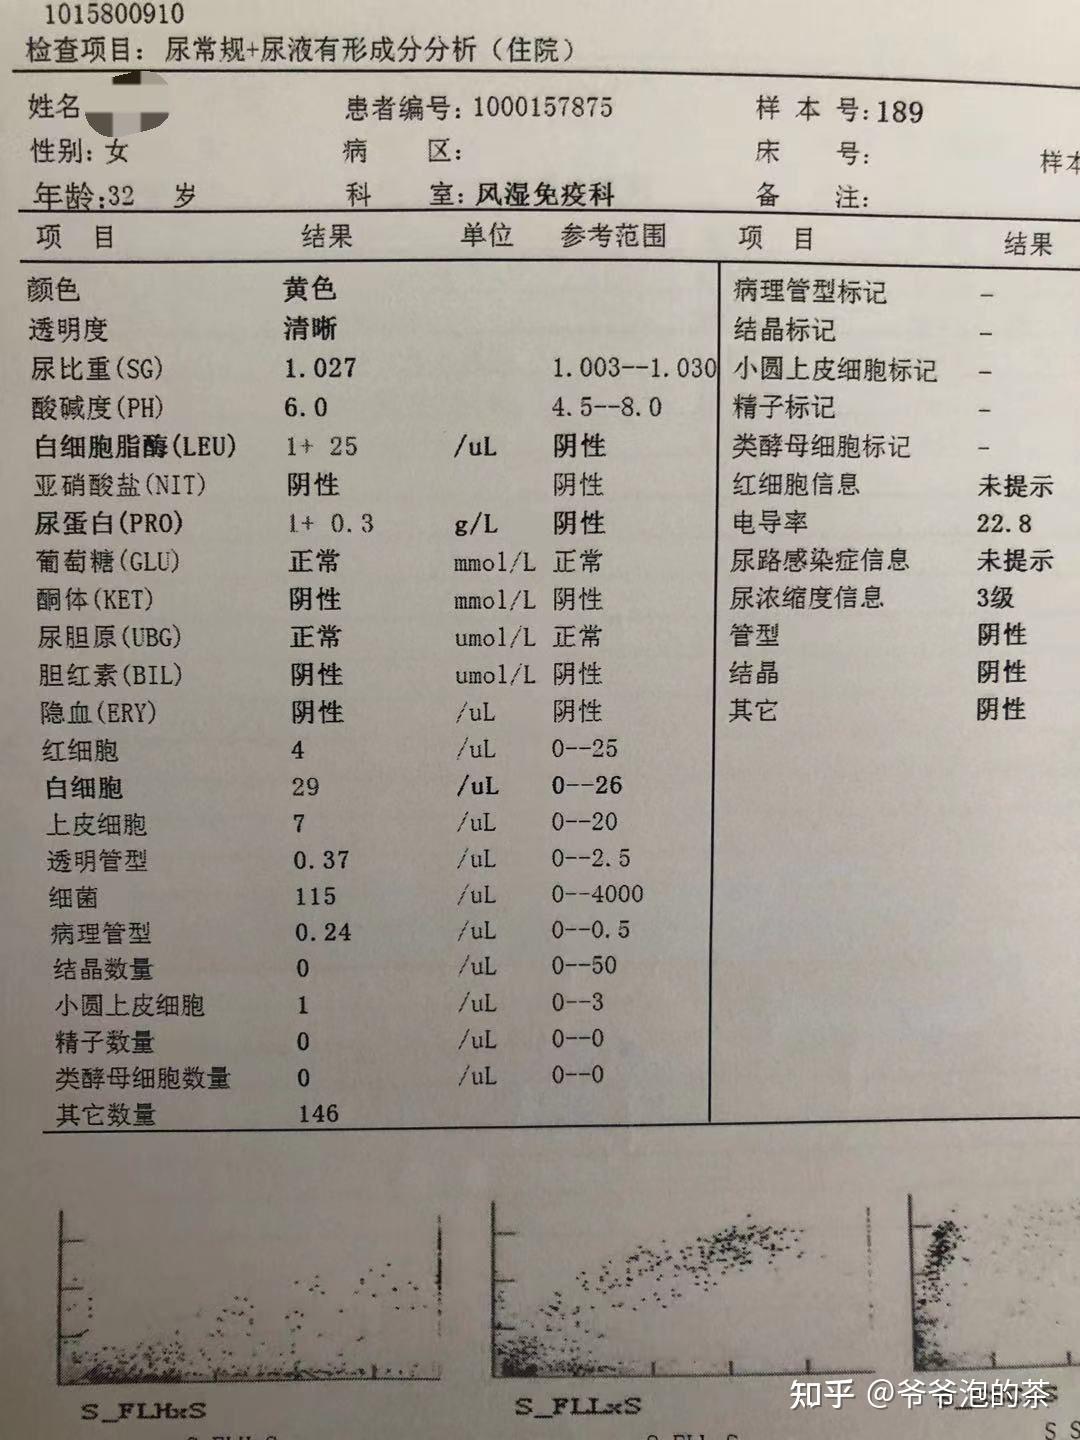 1015800910
检查项目：尿常规+尿液有形成分分析（住院）
姓名 患者编号：1000157875 样本号：189
性别：女 病区： 床号： 样本
年龄：32 岁 科室：风湿免疫科 备注：
项目 结果 单位 参考范围 项目 结果
颜色 黄色 病理管型标记 －
透明度 清晰 结晶标记 －
尿比重(SG) 1.027 1.003--1.030 小圆上皮细胞标记 －
酸碱度(PH) 6.0 4.5--8.0 精子标记 －
白细胞脂酶(LEU) 1+ 25 /uL 阴性 类酵母细胞标记 －
亚硝酸盐(NIT) 阴性 阴性 红细胞信息 未提示
尿蛋白(PRO) 1+ 0.3 g/L 阴性 电导率 22.8
葡萄糖(GLU) 正常 mmol/L 正常 尿路感染症信息 未提示
酮体(KET) 阴性 mmol/L 阴性 尿浓缩度信息 3级
尿胆原(UBG) 正常 umol/L 正常 管型 阴性
胆红素(BIL) 阴性 umol/L 阴性 结晶 阴性
隐血(ERY) 阴性 /uL 阴性 其它 阴性
红细胞 4 /uL 0--25
白细胞 29 /uL 0--26
上皮细胞 7 /uL 0--20
透明管型 0.37 /uL 0--2.5
细菌 115 /uL 0--4000
病理管型 0.24 /uL 0--0.5
结晶数量 0 /uL 0--50
小圆上皮细胞 1 /uL 0--3
精子数量 0 /uL 0--0
类酵母细胞数量 0 /uL 0--0
其它数量 146
S_FLHxS S_FLLxS
知乎 @爷爷泡的茶